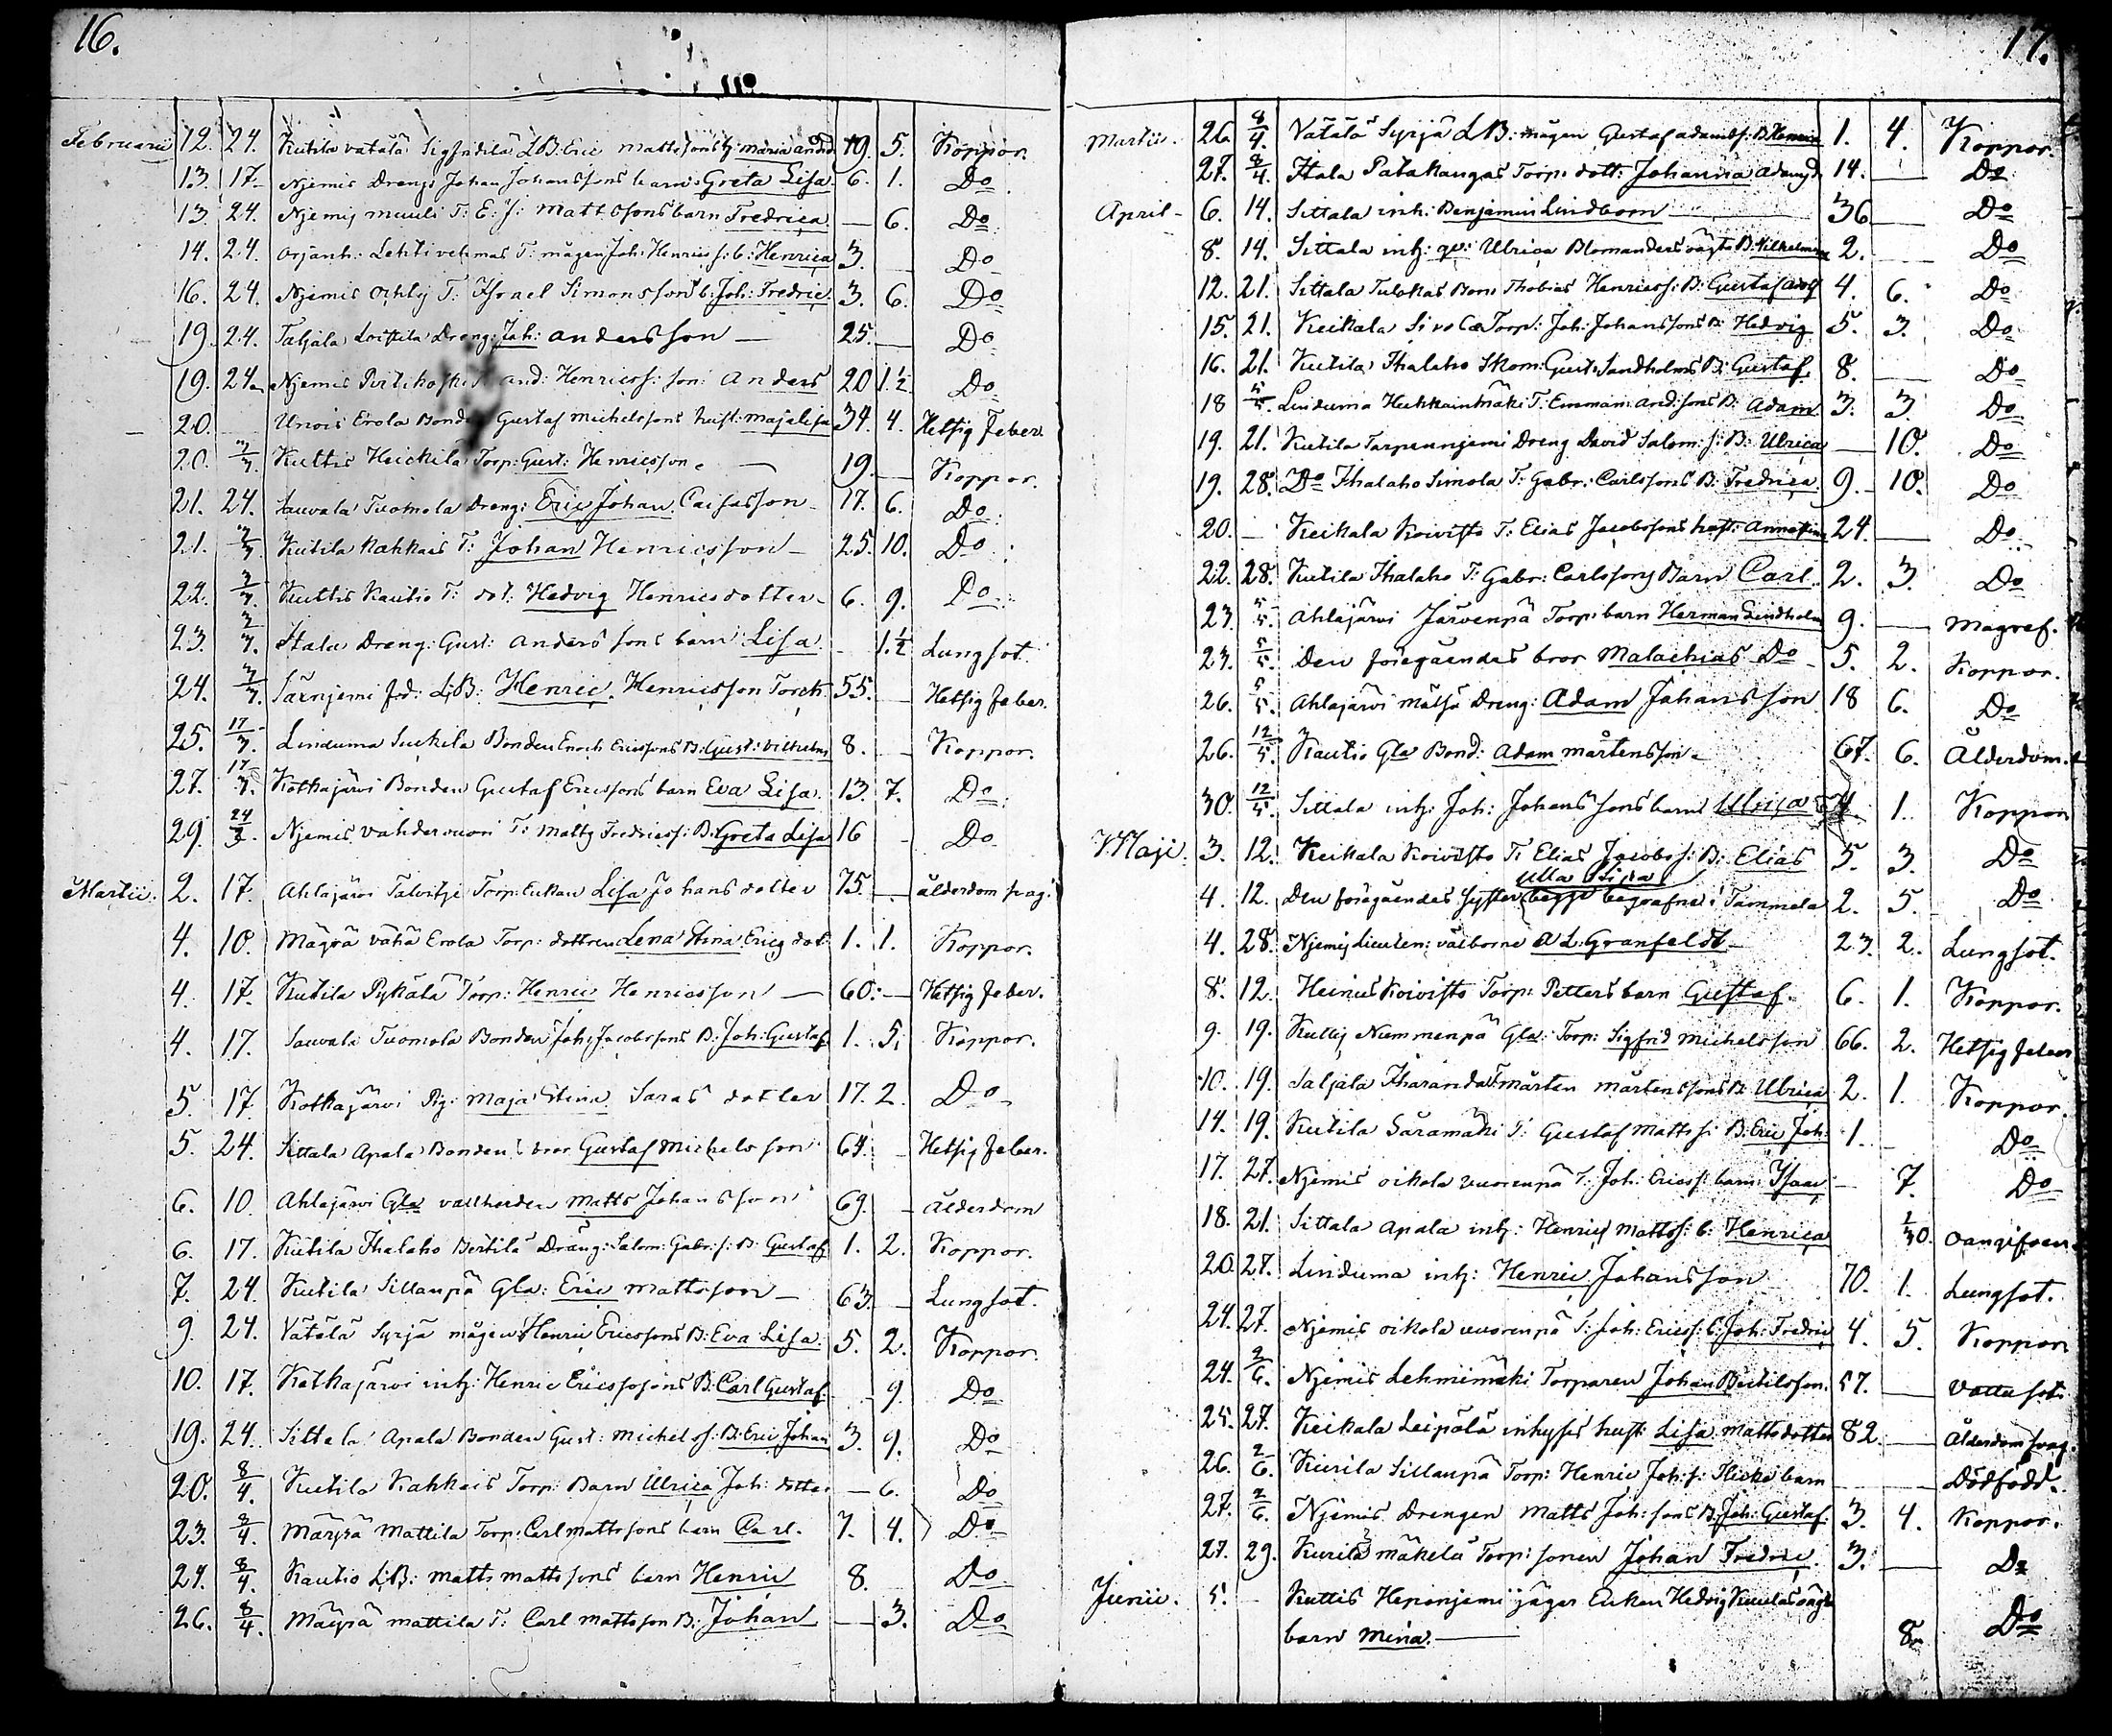 16.
Februarii 12. 24. Kutila vatala Sigfridila LB: Eric mattssons h: maria andrd 19. 5. Koppor.
13. 17. Njemis Drengs Johan Johanssons barn: Greta Lisa. 6. 1. Do
13. 24. Njemis muuli T: E: J: Mattssons barn Fredrica — 6. Do
14. 24. Orjanh: Lehtivehmas T: mågen Joh: Henrics s: b: Henrica 3. — Do
16. 24. Njemis Ochly T: Israel Simonssons b: Joh: Fredric. 3. 6. Do
19. 24. Taljala Loittila Dreng: Joh: andersson — 25. — Do
19. 24. Njemis Pirtikoski T. and: Henricss: son: Anders 20 1½ Do
20. Unois Erola Bonde Gustaf michelssons hust: majalisa 34. 4. Hetsig feber.
20. 3/3 Kuttis Heickilä Torp: Gust: Henricsson. — 19. — Koppor.
21. 24. Sauvala Tuomola Dreng: Eric Johan Caisasson 17. 6. Do
21. 3/3. Kutila Kahkais T: Johan Henricsson — 25. 10. Do
22. 3/3. Kuttis Kautio T: dot: Hedvig Henricsdotter. 6. 9. Do
23. 3/3. Itala Dreng: Gust: anderssons barn Lisa. 1.½ Lungsot.
24. 3/3. Särnjemi fd: LB: Henric. Henricsson Torck 55. — Hetsig feber.
25. 17/3. Linduma Suckila Bonden Enoch Ericssons B: Gust: Vilhelm 8. — Koppor.
27. 17/3. Kotkajärvi Bonden Gustaf Ericssons barn Eva Lisa. 13. 7. Do
29. 24/3. Njemis vahdervuori T: matts Fredricss: B: Greta Lisa 16 - Do
Martii. 2. 17. Ahlajärvi Talvitje Torp: Enkan Lisa Johansdotter 75. — ålderdom svag:
4. 10. Mägrä vähä Erola Torp: dottren Lena Stina Erics dot: 1. 1. Koppor.
4. 17. Kutila Pykälä Torp: Henric Henricsson — 60. — Hetsig feber.
4. 17. Sauvala Tuomola Bonden Joh: Jacobssons B: Joh: Gustaf 1. 5. Koppor.
5. 17. Kotkajärvi Pig: Maja Stina Saras dotter 17. 2. Do
5. 24. Sittala Apala Bondens bror Gustaf Michelsson 64. - Hetsig feber.
6. 10 Ahlajärvi Gla vallherden Matts Johansson 69. - ålderdom
6. 17. Kutila Ihalaho Bertila Dräng: Salom: Gabr: s: B: Gustaf 1. 2. Koppor.
7. 24. Kutila Sillanpä Gla: Eric mattsson — 63. - Lungsot.
9. 24. Vätälä Syrjä mågen Henric Ericssons B: Eva Lisa. 5. 2. Koppor.
10. 17. Kotkajärvi inh: Henric Ericssons B: Carl Gustaf. - 9. Do
19. 24. Sittala Apala Bonden Gust: michels s: B: Eric Johan 3. 9. Do
20. 8/4. Kutila Kahkais Torp: Barn Ulrica Joh: dotter — 6. Do
23. 8/4. Mäyrä Mattila Torp: Carl mattssons barn Carl. 7. 4. Do
24. 8/4. Kautio LB: matts mattssons barn Henric 8. Do
26. 8/4. Mäyrä mattila T: Carl mattsson B: Johan — 3. Do
17.
Martii. 26. 8/4. Vätälä Syrjä LB: mågen Gustaf adams s: B: Henric 1. 4. Koppor.
27. 8/4. Itala Patakangas Torp: dott: Johanna Adams d. 14. — Do
April - 6. 14. Sittala inh: Benjamin Lindbom — 36 — Do
8. 14. Sittala inh: qv: Ulrica Blomanders oägta B: Vilhelmina 2. — Do
12. 21. Sittala Tulokas Bon: Thobias Henricss: B: Gustaf Adolf 4. 6. Do
15. 21. Keikala Torp: Joh: Johanssons B: Hedvig 5. 3. Do
16. 21. Kutila Ihalaho Skom: Gust: Sandholms B: Gustaf. 8. — Do
18 5/5. Linduma Huhkainmäki T: Emman: and: sons B: Adam 3. 3. Do
19. 21. Kutila Tarpennjemi Dreng David Salom: s: B: Ulrica — 10. Do
19. 28. Do Ihalaho Simola T: Gabr: Carlssons B: Fredrica. 9. 10. Do
20. — Keikala Koivisto T: Elias Jacobssons hust: Anna Stina 24. — Do
22. 28. Kutila Ihalaho T: Gabr: Carlssons Barn Carl 2. 3. Do
23. 5/5. Ahlajärvi Järvenpä Torp: barn Herman Lindholm 9. — Magref.
23. 5/5. Den föregåendes bror Malachias Do 5. 2. Koppor.
26. 5/5. Ahlajärvi mälsä Dreng: Adam Johansson 18 6. Do
26. 12/5. Kautio Gla Bond: Adam mårtensson — 67. 6. Ålderdom.
30. 12/5. Sittala inh: Joh: Johanssons barn Ulrica 1. Koppor
Maji. 3. 12. Keikala Koivisto T: Elias Jacobs s: B: Elias 5. 3. Do
Ulla Lisa
4. 12. Den föregåendes Syster begge begrafne i Tammela 2. 5. Do
4. 28. Njemis Lieuten: välborne A L: Granfeldt — 23. 2. Lungsot.
8. 12. Heinus Koivisto Torp: Petters barn Gustaf. 6. 1. Koppor.
9. 19. Kuttis Nummenpä Gla: Torp: Sigfrid Michelsson 66. 2. Hetsig feber
10. 19. Saljala Iharanda T: mårten mårtenssons B: Ulrica 2. 1. Koppor.
14. 19. Kutila Säramäki T: Gustaf Matts s: B: Eric Joh: 1. Do
17. 27. Njemis oikola vuorenpä T: Joh: Ericss: barn Isaac — 7. Do
18. 21. Sittala Apala inh: Henric Mattss: b: Henrica 1/30. oangifven.
20. 27. Linduma inh: Henric Johansson 70. 1. Lungsot.
24. 27. Njemis oikola vuorenpä T: Joh: Ericss: B: Joh: Fredric 4. 5. Koppor
24. 2/6. Njemis Lehmimäki Torparen Johan Bertilsson. 57. — Vattusot.
25. 27. Keikala Leipälä inhyses hust: Lisa mattsdotter 82. — Ålderdom svag.
26. 2/6. Kurila Sillanpä Torp: Henric Joh: s: Flicke barn — Dödfödd.
27. 2/6. Njemis Drengen Matts Joh: sons B: Joh: Gustaf. 3. 4. Koppor.
27. 29. Kurila mäkelä Torp: sonen Johan Fredric. 3. — Do
Junii. 5. - Kuttis Heponjemi jäger Enkan Hedvig Kuulas oägta
barn Mina. — 8. Do